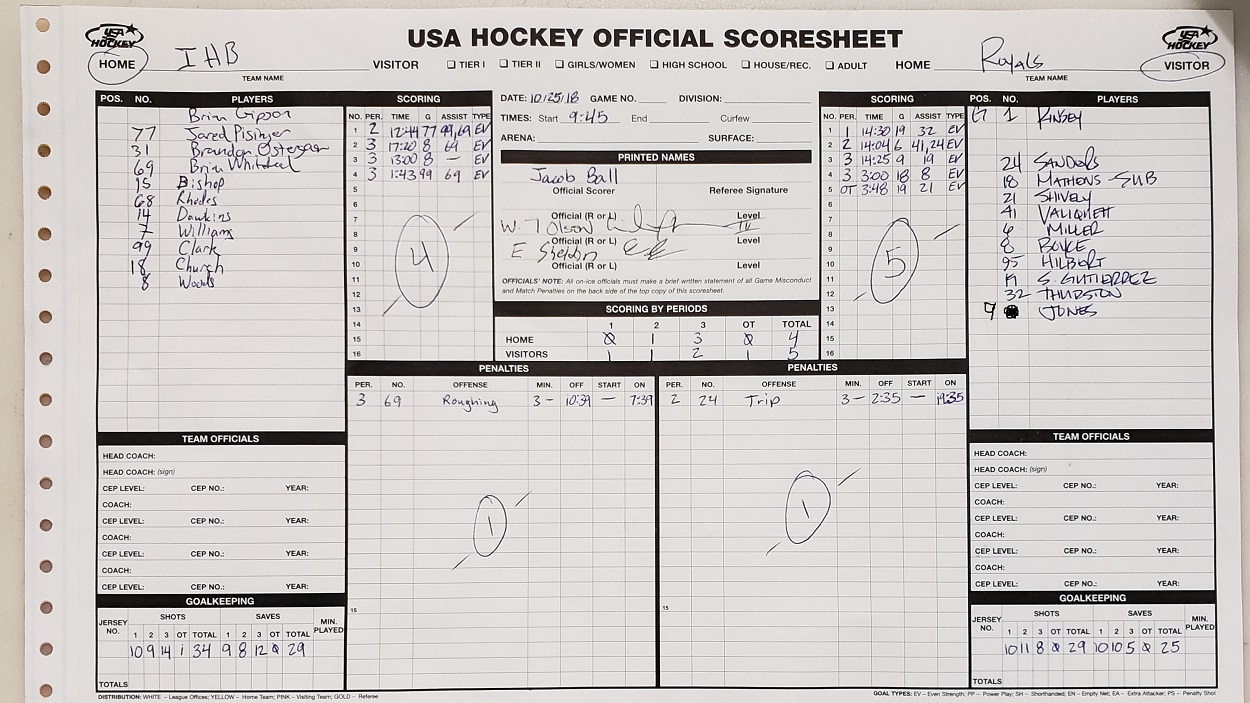 USA HOCKEY OFFICIAL SCORESHEET
USA HOCKEY
USA HOCKEY
HOME IHB VISITOR ☐ TIER I ☐ TIER II ☐ GIRLS/WOMEN ☐ HIGH SCHOOL ☐ HOUSE/REC. ☐ ADULT HOME Royals VISITOR
TEAM NAME TEAM NAME
POS. NO. PLAYERS
Brian Gipson
77 Jared Pisinger
31 Brandon Ostergan
69 Brian Whitehead
15 Bishop
68 Rhodes
14 Dawkins
7 Williams
99 Clark
18 Church
8 Woods
SCORING
NO. PER. TIME G ASSIST TYPE
1 2 12:44 77 99,69 EV
2 3 17:20 8 69 EV
3 3 13:00 8 — EV
4 3 1:43 99 69 EV
5
6
7
8
9
10
11
12
13
14
15
16
4
DATE: 10/25/18 GAME NO. DIVISION:
TIMES: Start 9:45 End Curfew
ARENA: SURFACE:
PRINTED NAMES
Jacob Ball
Official Scorer Referee Signature
Official (R or L) Level
W. T Olson
Official (R or L) Level
E Sheldon
Official (R or L) Level
OFFICIALS' NOTE: All on-ice officials must make a brief written statement of all Game Misconduct
and Match Penalties on the back side of the top copy of this scoresheet.
SCORING BY PERIODS
1 2 3 OT TOTAL
HOME 0 1 3 0 4
VISITORS 1 1 2 1 5
SCORING
NO. PER. TIME G ASSIST TYPE
1 1 14:30 19 32 EV
2 2 14:04 6 41,24 EV
3 3 14:25 9 19 EV
4 3 3:00 18 8 EV
5 OT 3:48 19 21 EV
6
7
8
9
10
11
12
13
14
15
16
5
POS. NO. PLAYERS
G 1 KINSEY
24 SANDERS
18 MATHENS-SUB
21 SHIVELY
41 VALIQUETT
6 MILLER
8 BOYCE
95 HILBORT
19 S. GUTIERREZ
32 THURSTON
9 JONES
PENALTIES
PER. NO. OFFENSE MIN. OFF START ON
3 69 Roughing 3 – 10:39 — 7:39
1
15
PENALTIES
PER. NO. OFFENSE MIN. OFF START ON
2 24 Trip 3 – 2:35 — 19:35
1
15
TEAM OFFICIALS
HEAD COACH:
HEAD COACH: (sign)
CEP LEVEL: CEP NO.: YEAR:
COACH:
CEP LEVEL: CEP NO.: YEAR:
COACH:
CEP LEVEL: CEP NO.: YEAR:
COACH:
CEP LEVEL: CEP NO.: YEAR:
GOALKEEPING
JERSEY NO. SHOTS SAVES MIN. PLAYED
1 2 3 OT TOTAL 1 2 3 OT TOTAL
10 9 14 1 34 9 8 12 0 29
TOTALS
TEAM OFFICIALS
HEAD COACH:
HEAD COACH: (sign)
CEP LEVEL: CEP NO.: YEAR:
COACH:
CEP LEVEL: CEP NO.: YEAR:
COACH:
CEP LEVEL: CEP NO.: YEAR:
COACH:
CEP LEVEL: CEP NO.: YEAR:
GOALKEEPING
JERSEY NO. SHOTS SAVES MIN. PLAYED
1 2 3 OT TOTAL 1 2 3 OT TOTAL
10 11 8 0 29 10 10 5 0 25
TOTALS
DISTRIBUTION: WHITE – League Offices; YELLOW – Home Team; PINK – Visiting Team; GOLD – Referee
GOAL TYPES: EV – Even Strength; PP – Power Play; SH – Shorthanded; EN – Empty Net; EA – Extra Attacker; PS – Penalty Shot